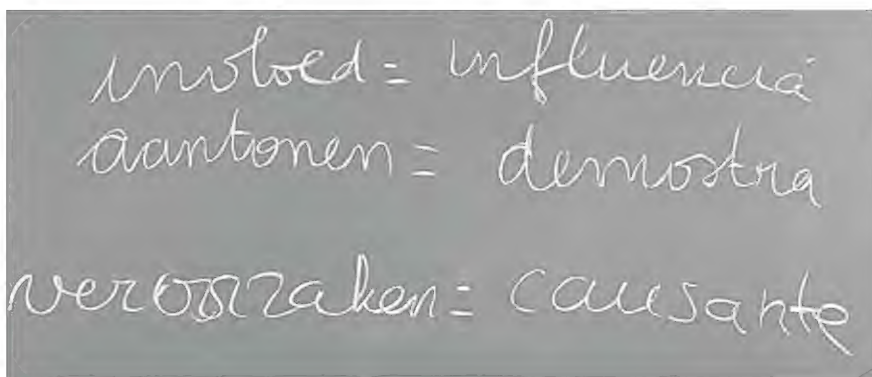 invloed = influenciá
aantonen = demostra
veroorzaken = causante